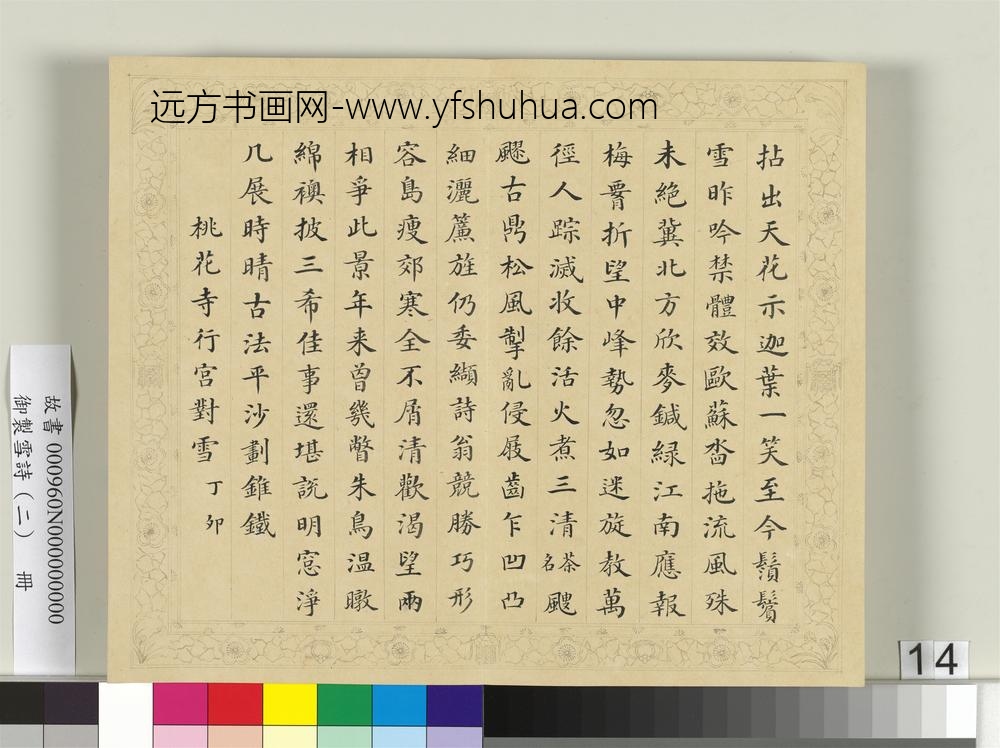 远方书画网-www.yfshuhua.com
拈出天花示迦葉一笑至今鬚鬢
雪昨吟禁體效歐蘇畨拖流風殊
未絕冀北方欣麥鍼緑江南應報
梅罥折望中峰勢忽如迷旋教萬
徑人踪滅收餘活火煮三清茶名颼
飀古鼎松風掣亂侵屐齒乍凹凸
細灑簾旌仍委纈詩翁競勝巧形
容島瘦郊寒全不屑清歡渴望兩
相爭此景年来曾幾瞥朱鳥温暾
綿襖披三希佳事還堪說明窓淨
几展時晴古法平沙劃錐鐵
桃花寺行宮對雪 丁卯
故書 000960N000000000
御製雪詩(二) 冊
14